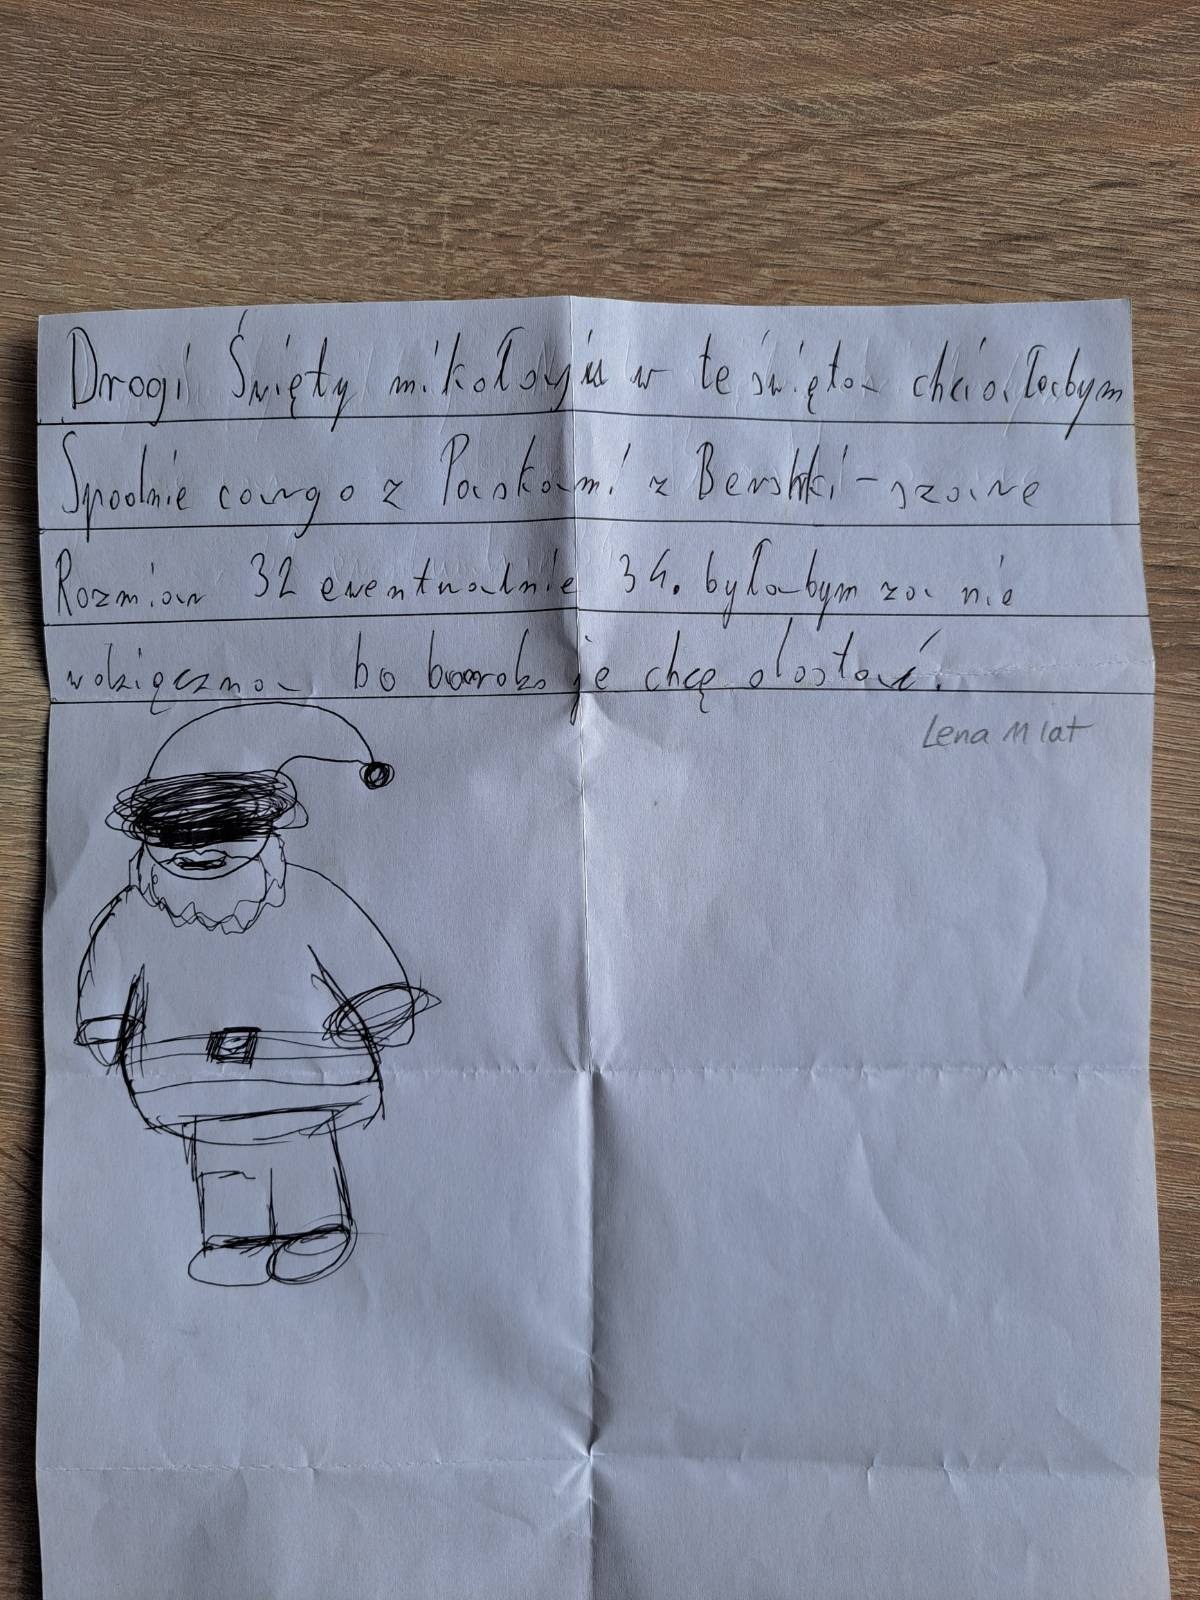 Drogi Święty mikołaju w te święta chciałabym
Spodnie cargo z Paskami z Bershki - szare
Rozmiar 32 ewentualnie 34. byłabym za nie
wdzięczna bo bardzo je chcę dostać.
Lena 11 lat